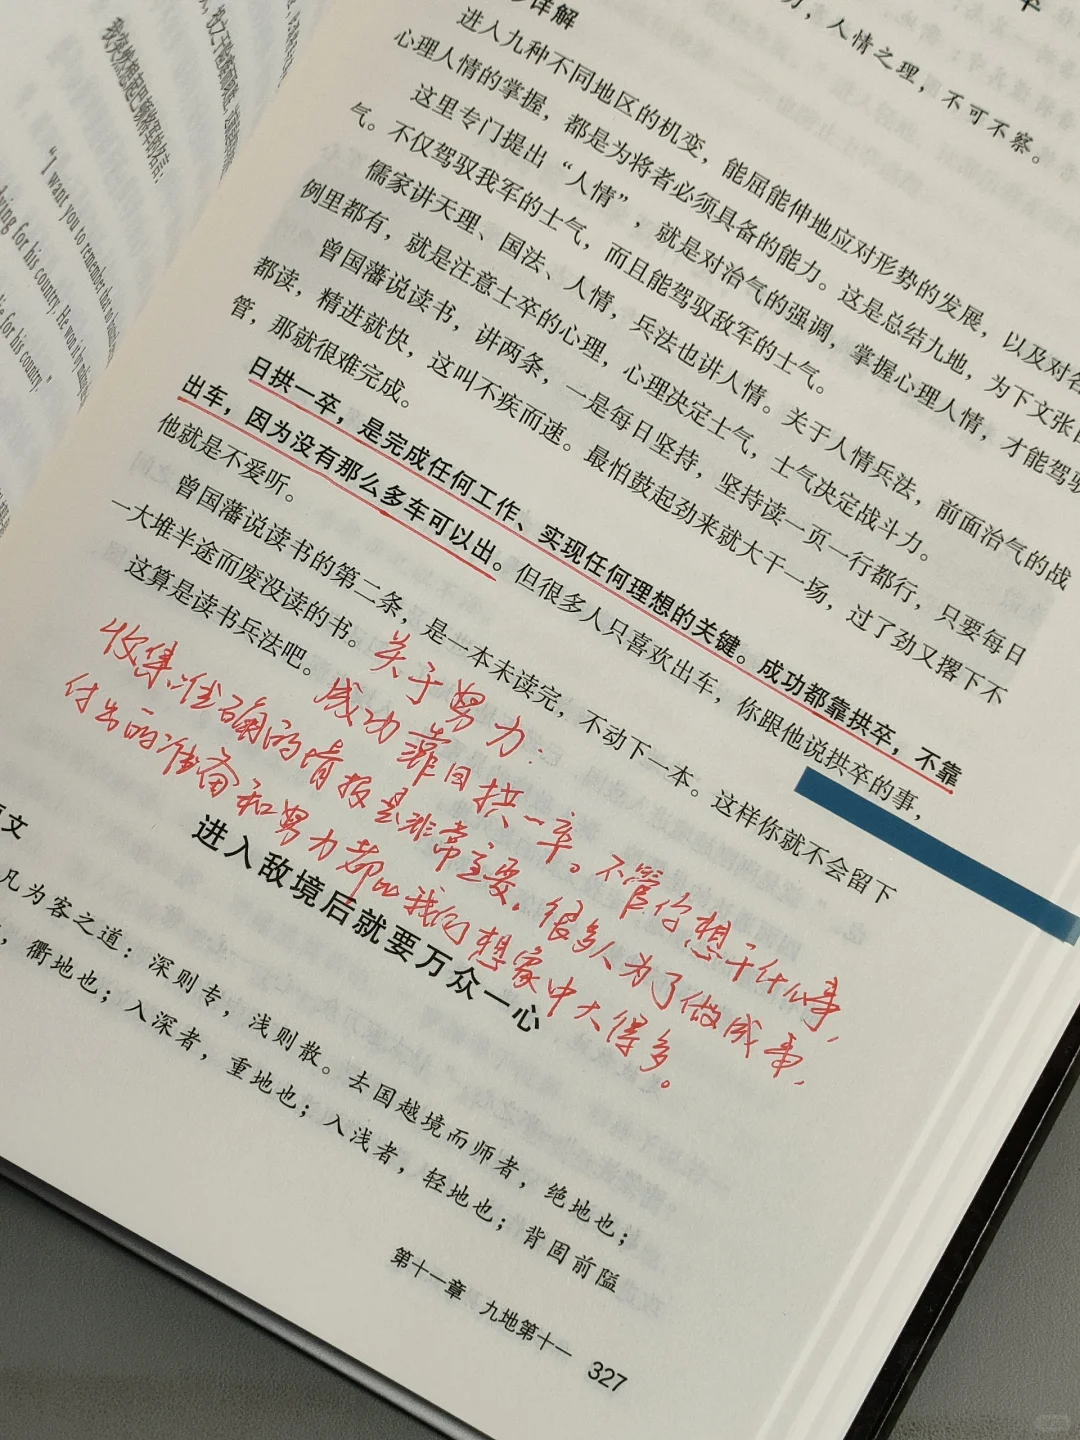 "I want you to remember that no
dying for his country. He won it
die for his country."
人情之理，不可不察。
详解
进入九种不同地区的机变，能屈能伸地应对形势的发展，以及对各
心理人情的掌握，都是为将者必须具备的能力。这是总结九地，为下文张
这里专门提出“人情”，就是对治气的强调，掌握心理人情，才能驾驭
气。不仅驾驭我军的士气，而且能驾驭敌军的士气。
儒家讲天理、国法、人情，兵法也讲人情。关于人情兵法，前面治气的战
例里都有，就是注意士卒的心理，心理决定士气，士气决定战斗力。
曾国藩说读书，讲两条，一是每日坚持，坚持读一页一行都行，只要每日
都读，精进就快，这叫不疾而速。最怕鼓起劲来就大干一场，过了劲又撂下不
管，那就很难完成。
日拱一卒，是完成任何工作、实现任何理想的关键。成功都靠拱卒，不靠
出车，因为没有那么多车可以出。但很多人只喜欢出车，你跟他说拱卒的事，
他就是不爱听。
曾国藩说读书的第二条，是一本未读完，不动下一本。这样你就不会留下
一大堆半途而废没读的书。
这算是读书兵法吧。
关于努力：
成功靠日拱一卒。不管你想干什么事，
收集准确的情报是非常重要。很多人为了做成事，
付出的准备和努力都比我们想象中大得多。
进入敌境后就要万众一心
原文
凡为客之道：深则专，浅则散。去国越境而师者，绝地也；
，衢地也；入深者，重地也；入浅者，轻地也；背固前隘
第十一章 九地第十一 327